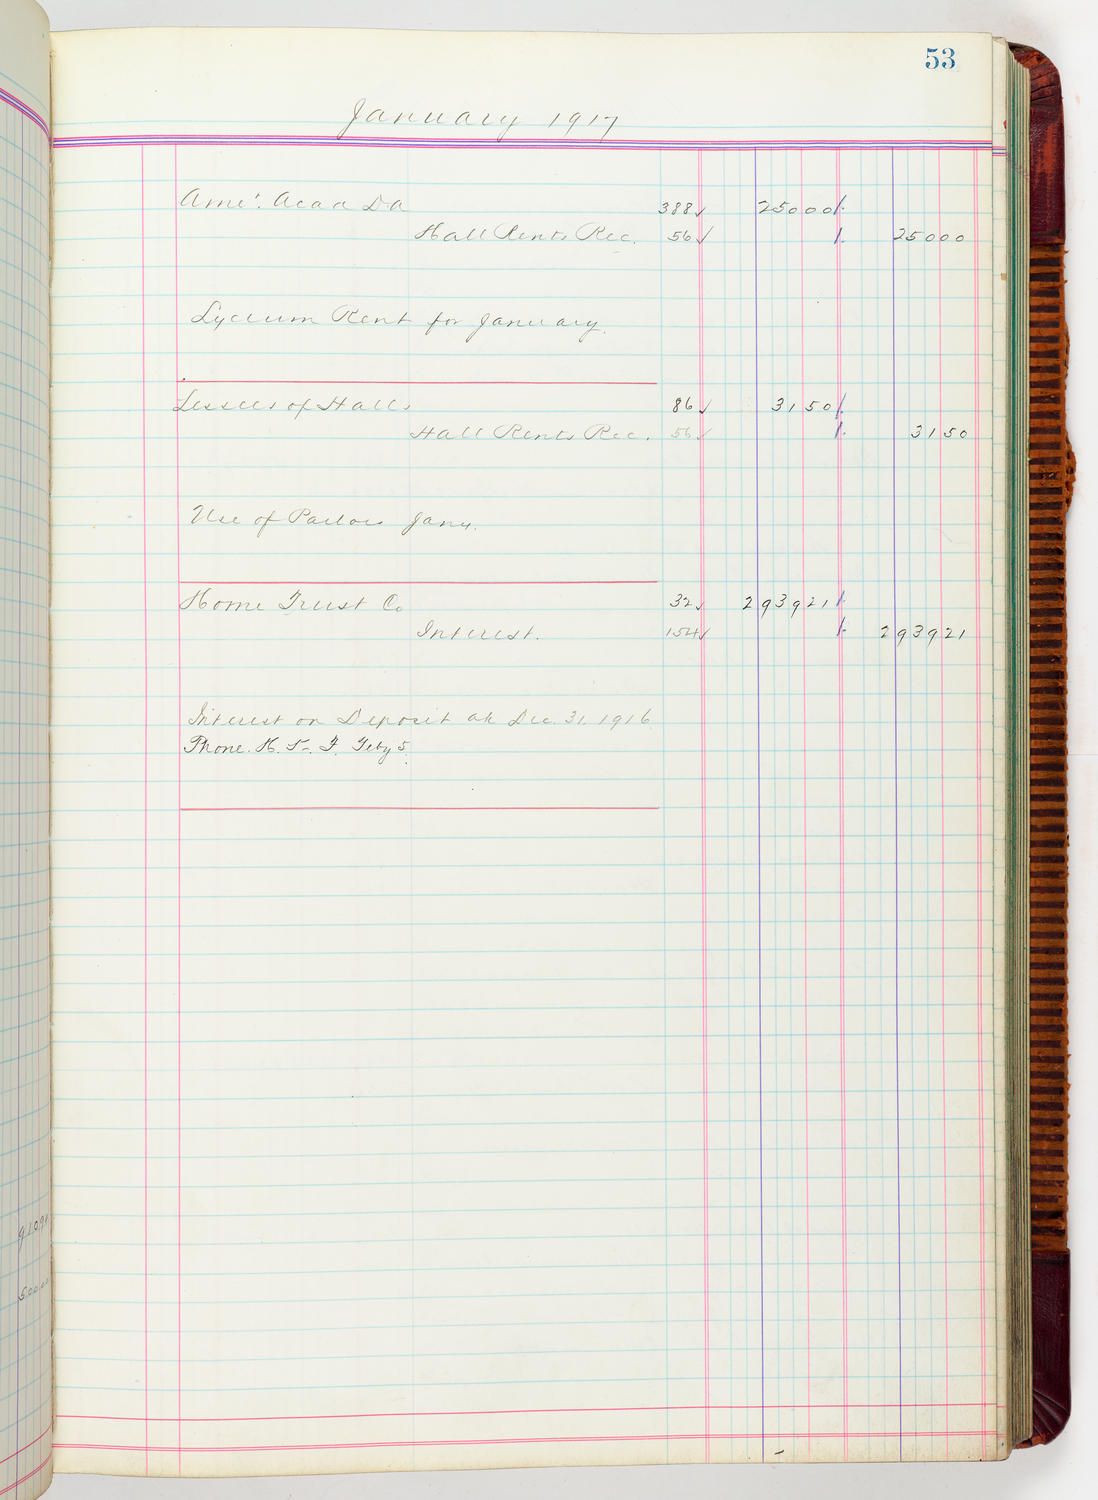 53
January 1917
Ame'. Acad Da 388 ✓ 25000
Hall Rents Rec. 56 ✓ 25000
Lyceum Rent for January.
Lessees of Halls 86 ✓ 3150
Hall Rents Rec. 56 ✓ 3150
Use of Parlors Jany.
Home Trust Co 32 ✓ 293921
Interest. 154 ✓ 293921
Interest on Deposit at Dec. 31, 1916
Phone. H. F. Feby 5.